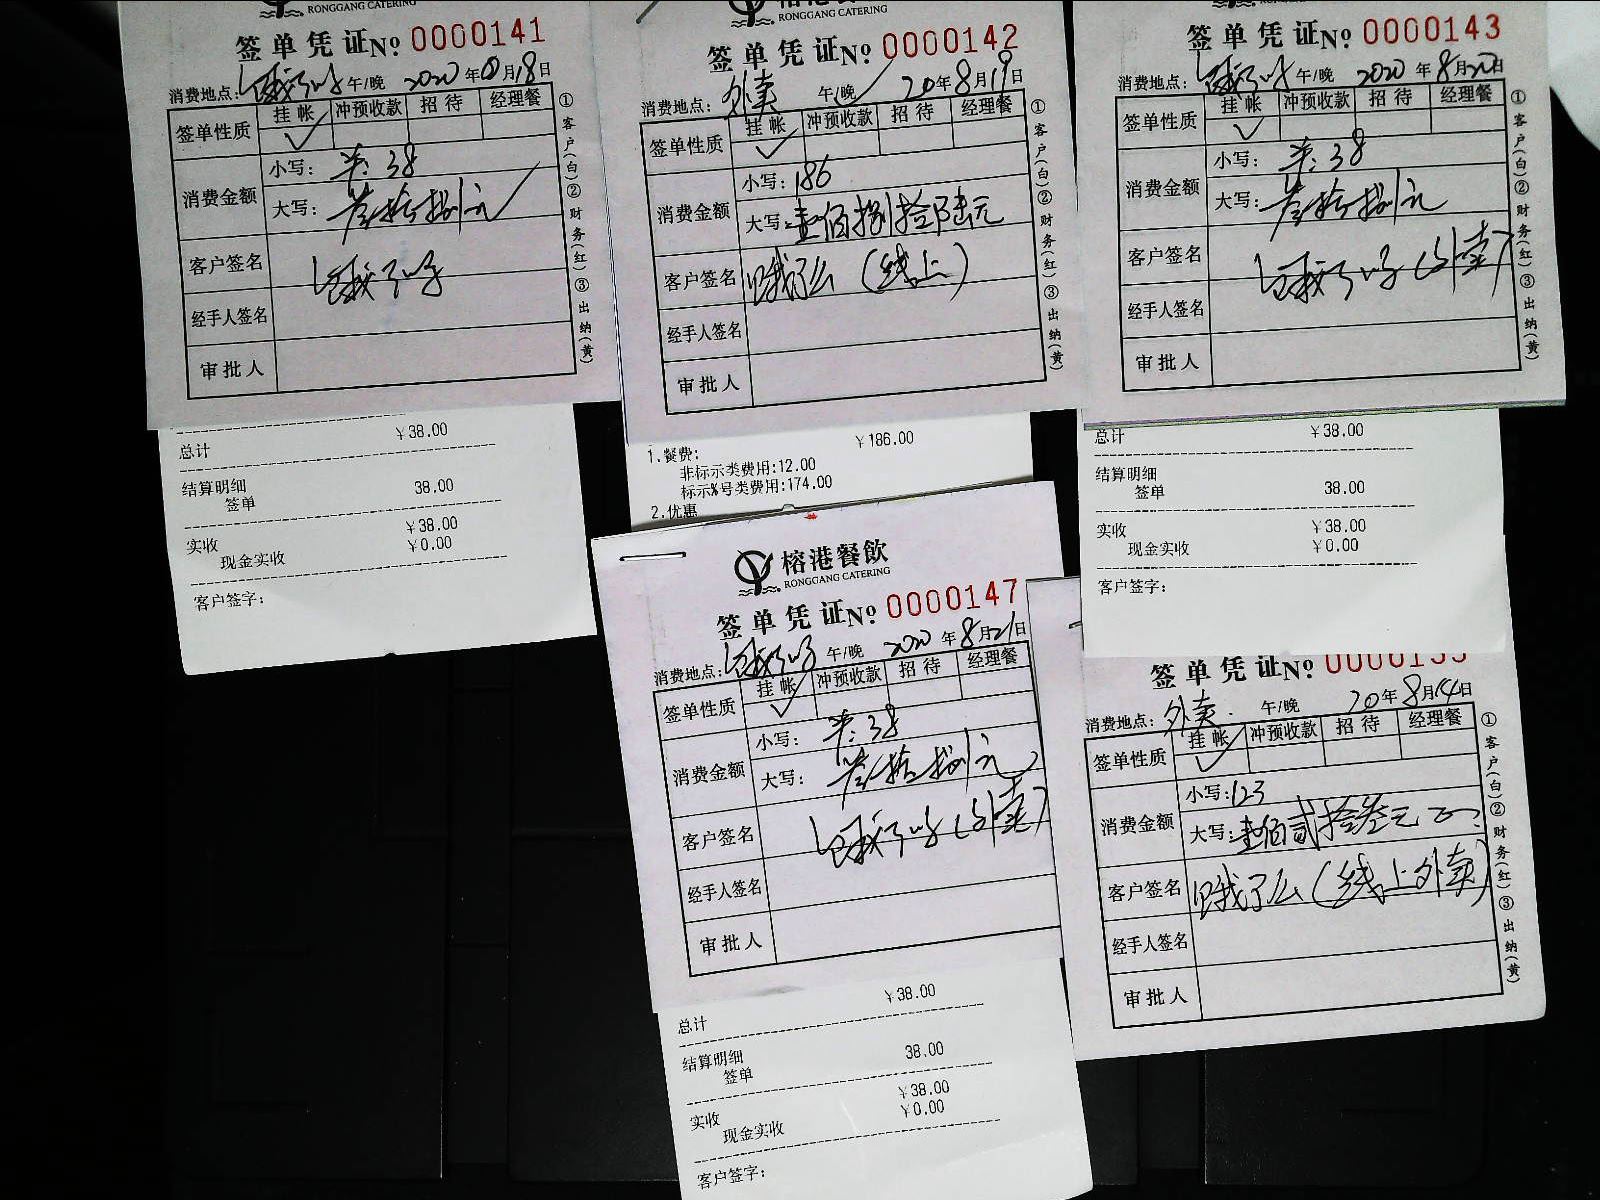 RONGGANG CATERING
签单凭证No. 0000141
消费地点: 饿了么 午/晚 2020年8月18日
签单性质 挂帐 冲预收款 招待 经理餐
✓
消费金额 小写: 38
大写: 叁拾捌元
客户签名 饿了么
经手人签名
审批人
①客户(白)②财务(红)③出纳(黄)
总计 ¥38.00
结算明细
签单 38.00
实收 ¥38.00
现金实收 ¥0.00
客户签字:
RONGGANG CATERING
签单凭证No. 0000142
消费地点: 外卖 午/晚 20年8月19日
签单性质 挂帐 冲预收款 招待 经理餐
✓
消费金额 小写: 186
大写: 壹佰捌拾陆元
客户签名 饿了么(线上)
经手人签名
审批人
①客户(白)②财务(红)③出纳(黄)
¥186.00
1.餐费:
非标示类费用:12.00
标示%号类费用:174.00
2.优惠
签单凭证No. 0000143
消费地点: 饿了么 午/晚 2020年8月20日
签单性质 挂帐 冲预收款 招待 经理餐
✓
消费金额 小写: 38
大写: 叁拾捌元
客户签名 饿了么(外卖)
经手人签名
审批人
①客户(白)②财务(红)③出纳(黄)
总计 ¥38.00
结算明细
签单 38.00
实收 ¥38.00
现金实收 ¥0.00
客户签字:
榕港餐飲
RONGGANG CATERING
签单凭证No. 0000147
消费地点: 饿了么 午/晚 2020年8月21日
签单性质 挂帐 冲预收款 招待 经理餐
✓
消费金额 小写: 38
大写: 叁拾捌元
客户签名 饿了么(外卖)
经手人签名
审批人
¥38.00
总计
结算明细 38.00
签单
¥38.00
实收 ¥0.00
现金实收
客户签字:
签单凭证No.
消费地点: 外卖 午/晚 20年8月14日
签单性质 挂帐 冲预收款 招待 经理餐
✓
消费金额 小写: 123
大写: 壹佰贰拾叁元正
客户签名 饿了么(线上外卖)
经手人签名
审批人
①客户(白)②财务(红)③出纳(黄)